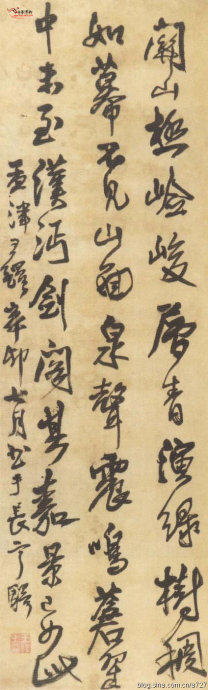 關山極嶮峻層青綠樹稠
如幕不見山面泉聲震鳴蒼翠
中未至漢沔劍閣其嘉景已如此
孟津王鐸辛卯七月書于長寧驛
blog.sina.com.cn/a727